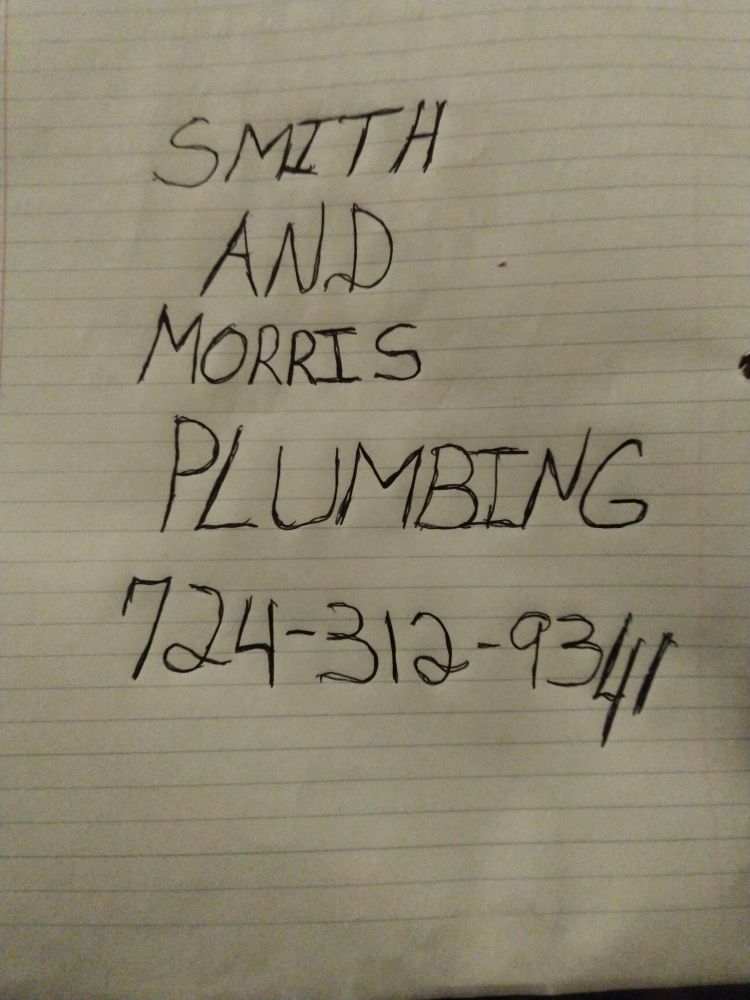 SMITH
AND
MORRIS
PLUMBING
724-312-9341